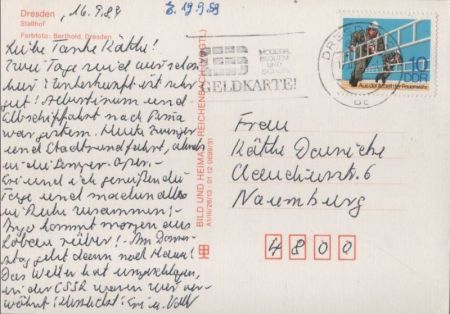 Dresden
Stallhof
Farbfoto: Berthold, Dresden
16.9.89
E. 19.9.89
Liebe Tante Käthe!
Zwei Tage sind wir schon
hier! Unterkunft ist sehr
gut! Albertinum und
Elbschiffahrt nach Pirna
war gestern. Heute Zwinger
und Stadtrundfahrt, abends
in die Semper-Oper.
und ich genießen die
Tage und machen alles
in Ruhe zusammen!
kommt morgen aus
Löbau rüber! Am Donners-
tag geht dann nach Haus!
Das Wetter hat umgeschlagen,
in der CSSR waren wir ver-
wöhnt! Herzlichst
BILD UND HEIMAT REICHENBACH (VOGTL)
A1/B/26/13 01 12 0699/31
MODERN,
BEQUEM
UND
SICHER
GELDKARTE!
DRESDEN
10
DDR
Aus der Arbeit der Feuerwehr
Frau
Käthe
6
Naumburg
4800